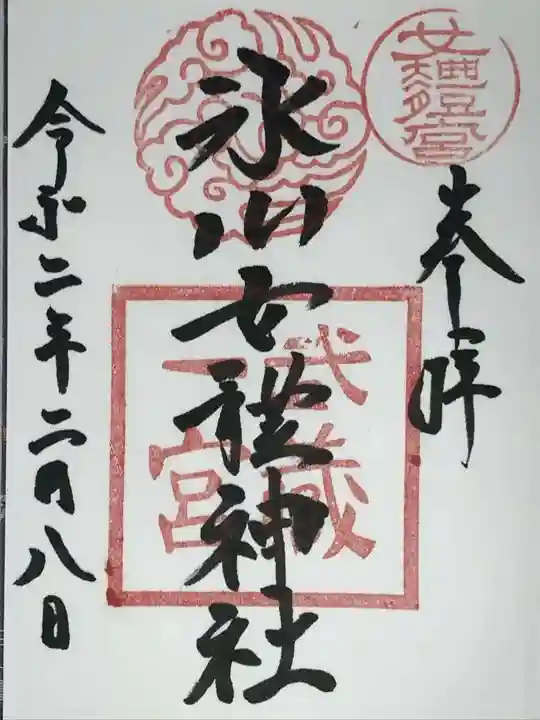 奉拝
氷川女體神社
令和二年二月八日
武蔵
一宮